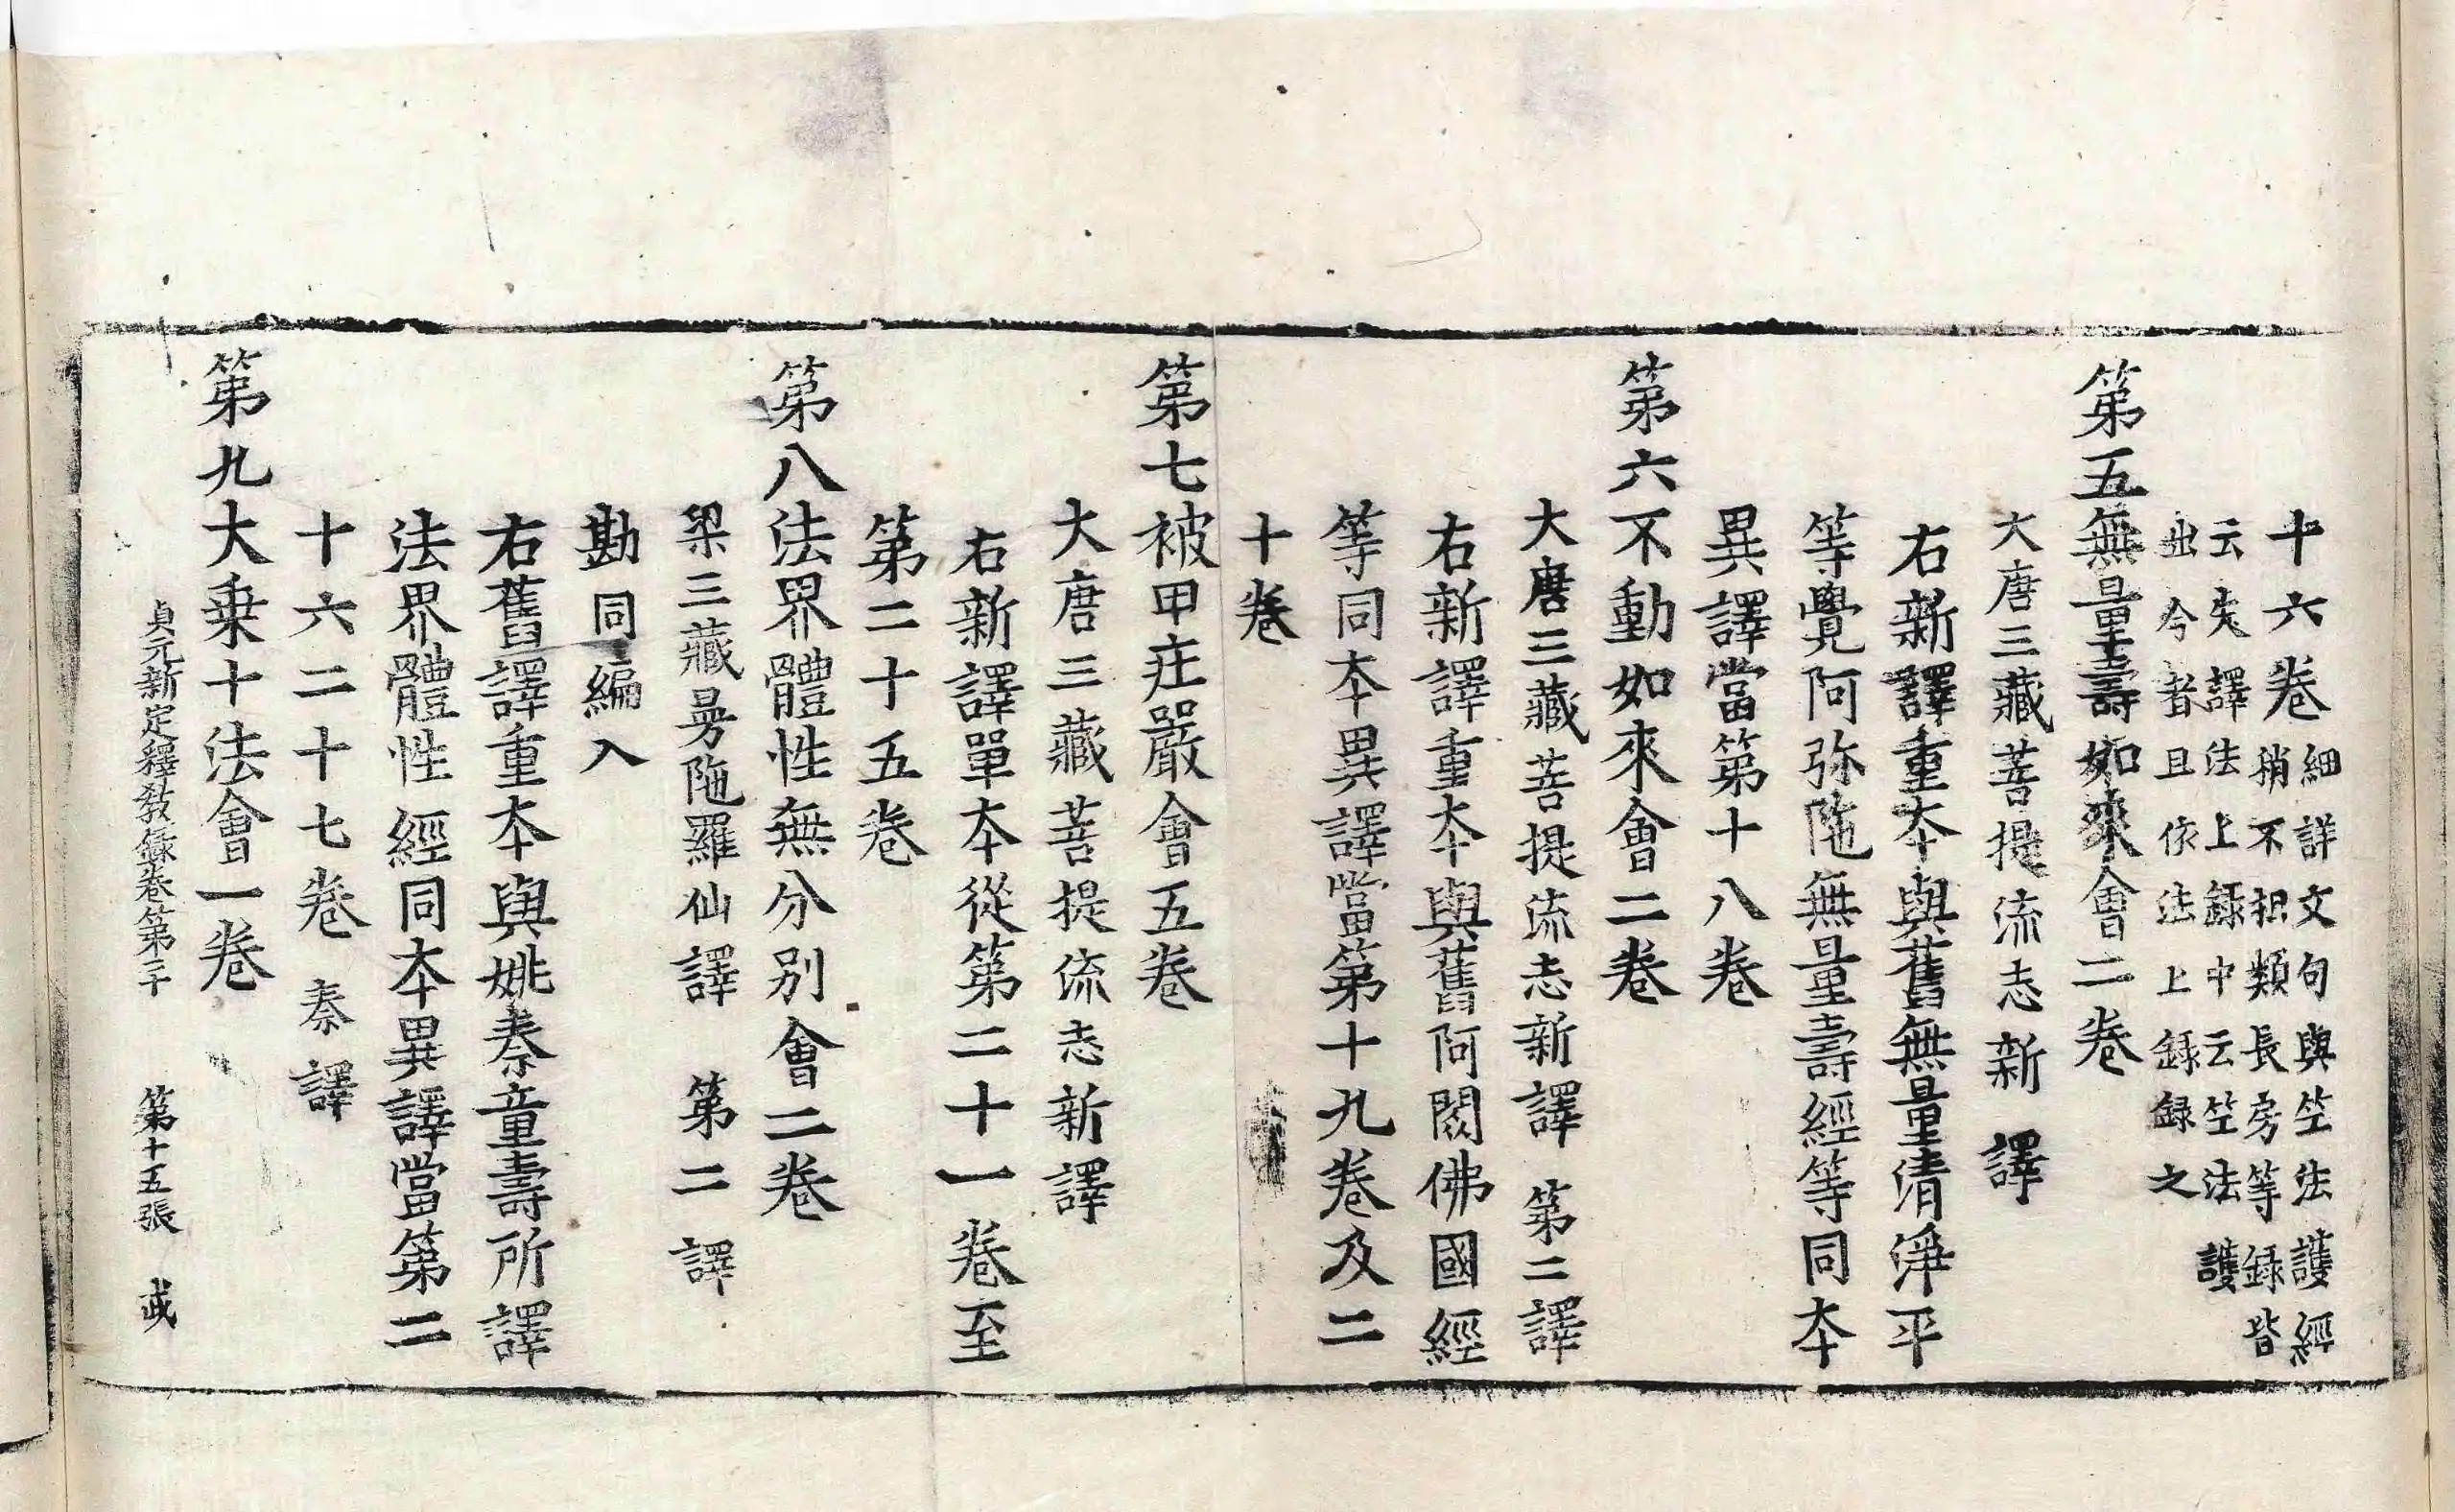 十六卷細詳文句與竺法護經
稍不相類長房等録皆
云失譯法上録中云竺法護
出今者且依法上録録之
第五無量壽如來會二卷
大唐三藏菩提流志新譯
右新譯重本與舊無量清淨平
等覺阿弥陁無量壽經等同本
異譯當第十八卷
第六不動如來會二卷
大唐三藏菩提流志新譯 第二譯
右新譯重本與舊阿閦佛國經
等同本異譯當第十九卷及二
十卷
第七被甲莊嚴會五卷
大唐三藏菩提流志新譯
右新譯單本從第二十一卷至
第二十五卷
第八法界體性無分別會二卷
梁三藏曼陁羅仙譯 第二譯
勘同編入
右舊譯重本與姚秦童壽所譯
法界體性經同本異譯當第二
十六二十七卷 秦譯
第九大乗十法會一卷
貞元新定釋教録卷第二十 第十五張